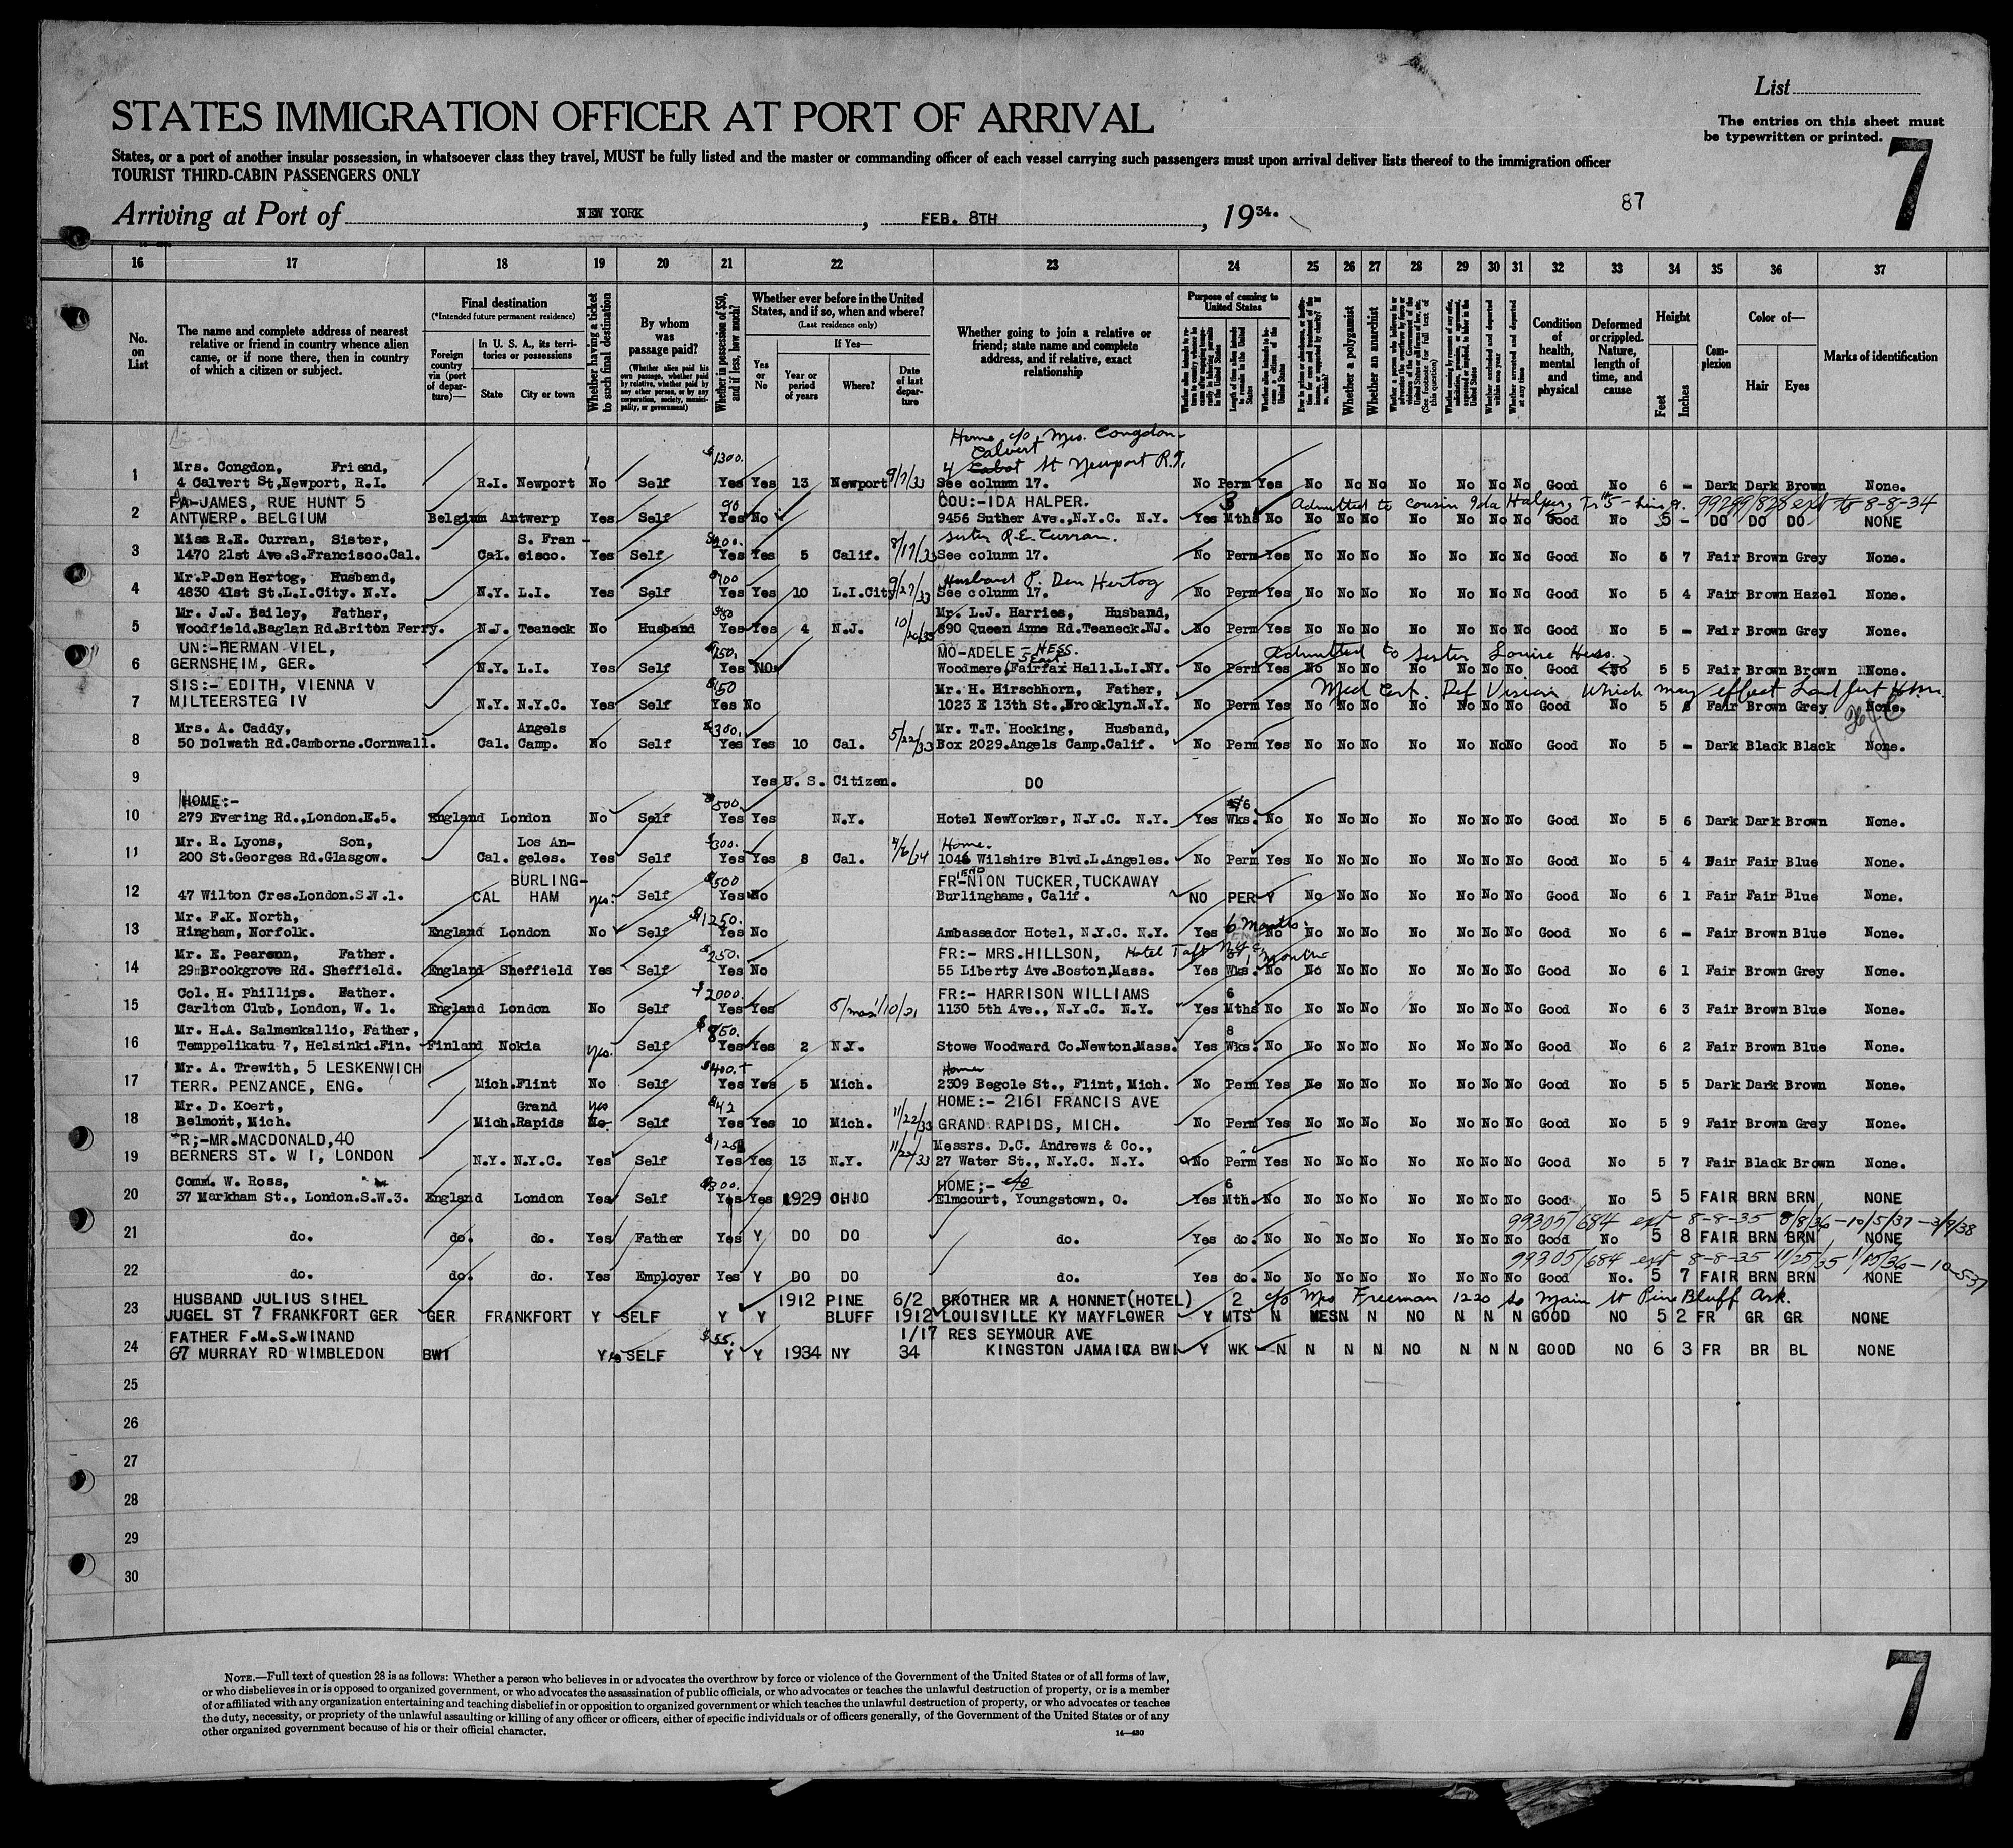 List
STATES IMMIGRATION OFFICER AT PORT OF ARRIVAL
The entries on this sheet must
be typewritten or printed.
7
States, or a port of another insular possession, in whatsoever class they travel, MUST be fully listed and the master or commanding officer of each vessel carrying such passengers must upon arrival deliver lists thereof to the immigration officer
TOURIST THIRD-CABIN PASSENGERS ONLY
87
Arriving at Port of NEW YORK, FEB. 8TH, 1934.
16 17 18 19 20 21 22 23 24 25 26 27 28 29 30 31 32 33 34 35 36 37
No. on List
The name and complete address of nearest relative or friend in country whence alien came, or if none there, then in country of which a citizen or subject.
Final destination
(*Intended future permanent residence)
Foreign country via (port of departure)—
In U. S. A., its territories or possessions
State City or town
Whether having a ticket to such final destination
By whom was passage paid?
(Whether alien paid his own passage, whether paid by relative, whether paid by any other person, or by any corporation, society, municipality, or government)
Whether in possession of $50, and if less, how much?
Whether ever before in the United States, and if so, when and where?
(Last residence only)
Yes or No
If Yes—
Year or period of years
Where?
Date of last departure
Whether going to join a relative or friend; state name and complete address, and if relative, exact relationship
Purpose of coming to United States
Length of time alien intends to remain in the United States
Whether a polygamist
Whether an anarchist
Whether excluded and deported within one year
Whether arrested and deported at any time
Condition of health, mental and physical
Deformed or crippled. Nature, length of time, and cause
Height
Feet Inches
Complexion
Color of—
Hair Eyes
Marks of identification
Home c/o Mrs. Congdon
Calvert
4 Cabot St Newport R.I.
1 Mrs. Congdon, Friend, $1300.
4 Calvert St, Newport, R.I. R.I. Newport No Self Yes Yes 13 Newport 9/7/33 See column 17. No Perm Yes No No No No No No No Good No 6 - Dark Dark Brown None.
2 FA-JAMES, RUE HUNT 5 90 COU:-IDA HALPER. 3 Admitted to cousin Ida Halper, 8-8-34
ANTWERP. BELGIUM Belgium Antwerp Yes Self Yes No 9456 Suther Ave.,N.Y.C. N.Y. Yes Mths No No No No No No No No Good No 5 - DO DO DO NONE
3 Miss R.E. Curran, Sister, S. Fran- sister R.E. Curran.
1470 21st Ave.S.Francisco.Cal. Cal. cisco. Yes Self Yes Yes 5 Calif. 8/17/33 See column 17. No Perm Yes No No No No No No No Good No 5 7 Fair Brown Grey None.
4 Mr.P.Den Hertog, Husband, $700 Husband P. Den Hertog
4830 41st St.L.I.City. N.Y. N.Y. L.I. Yes Self Yes Yes 10 L.I.City 9/27/33 See column 17. No Perm Yes No No No No No No No Good No 5 4 Fair Brown Hazel None.
5 Mr. J.J. Bailey, Father, Mr. L.J. Harries, Husband,
Woodfield.Baglan Rd.Briton Ferry. N.J. Teaneck No Husband Yes Yes 4 N.J. 10/20/33 890 Queen Anne Rd.Teaneck.NJ. No Perm Yes No No No No No No No Good No 5 - Fair Brown Grey None.
6 UN:-HERMAN VIEL, $150. MO-ADELE-HESS. Admitted to sister Louise Hess.
GERNSHEIM, GER. N.Y. L.I. Yes Self Yes NO Woodmere, Fairfax Hall.L.I.NY. No Perm Yes No No No No No No No Good No 5 5 Fair Brown Brown None.
7 SIS:- EDITH, VIENNA V $50 Mr. H. Hirschhorn, Father, Med Cert. Def Vision which may effect
MILTEERSTEG IV N.Y. N.Y.C. Yes Self Yes No 1023 E 13th St.,Brooklyn.N.Y. No Perm Yes No No No No No No No Good No 5 Fair Brown Grey None.
8 Mrs. A. Caddy, Angels $300. Mr. T.T. Hocking, Husband,
50 Dolwath Rd.Camborne.Cornwall. Cal. Camp. No Self Yes Yes 10 Cal. 5/22/33 Box 2029.Angels Camp.Calif. No Perm Yes No No No No No No No Good No 5 - Dark Black Black None.
9 Yes U. S. Citizen. DO
10 HOME:- $500. 6
279 Evering Rd.,London.E.5. England London No Self Yes Yes N.Y. Hotel NewYorker, N.Y.C. N.Y. Yes Wks. No No No No No No No No Good No 5 6 Dark Dark Brown None.
11 Mr. R. Lyons, Son, Los An- $300. Home.
200 St.Georges Rd.Glasgow. Cal. geles. Yes Self Yes Yes 8 Cal. 1046 Wilshire Blvd.L.Angeles. No Perm Yes No No No No No No No Good No 5 4 Fair Fair Blue None.
12 BURLING- $500 FRIEND-NION TUCKER,TUCKAWAY
47 Wilton Cres.London.S.W.1. CAL HAM yes. Self Yes No Burlinghame, Calif. NO PER Y No No No No No No No Good No 6 1 Fair Fair Blue None.
13 Mr. F.K. North, $1250. 6 Months
Ringham, Norfolk. England London No Self Yes No Ambassador Hotel, N.Y.C. N.Y. Yes No No No No No No No No Good No 6 - Fair Brown Blue None.
14 Mr. E. Pearson, Father. $250. FR:- MRS.HILLSON, Hotel Taft NYC 1 Month
29 Brookgrove Rd. Sheffield. England Sheffield Yes Self Yes No 55 Liberty Ave.Boston,Mass. Yes Wks. No No No No No No No No Good No 6 1 Fair Brown Grey None.
15 Col. H. Phillips. Father. $2000. FR:- HARRISON WILLIAMS 6
Carlton Club, London, W. 1. England London No Self Yes Yes 1130 5th Ave., N.Y.C. N.Y. Yes Mths No No No No No No No No Good No 6 3 Fair Brown Blue None.
16 Mr. H.A. Salmenkallio, Father, 8
Temppelikatu 7, Helsinki.Fin. Finland Nokia yes. Self Yes Yes 2 N.Y. Stowe Woodward Co.Newton.Mass. Yes Wks. No No No No No No No No Good No 6 2 Fair Brown Blue None.
17 Mr. A. Trewith, 5 LESKENWICH $400. Home
TERR. PENZANCE, ENG. Mich. Flint No Self Yes Yes 5 Mich. 2309 Begole St., Flint, Mich. No Perm Yes No No No No No No No Good No 5 5 Dark Dark Brown None.
18 Mr. D. Koert, Grand yes $42 HOME:- 2161 FRANCIS AVE
Belmont, Mich. Mich. Rapids No. Self Yes Yes 10 Mich. 11/22/33 GRAND RAPIDS, MICH. No Perm Yes No No No No No No No Good No 5 9 Fair Brown Grey None.
19 FR;-MR.MACDONALD,40 Messrs. D.C. Andrews & Co.,
BERNERS ST. W I, LONDON N.Y. N.Y.C. Yes Self Yes Yes 13 N.Y. 11/22/33 27 Water St., N.Y.C. N.Y. No Perm Yes No No No No No No No Good No 5 7 Fair Black Brown None.
20 Comm. W. Ross, $300. HOME;- c/o 6
37 Markham St., London.S.W.3. England London Yes Self Yes Yes 1929 OHIO Elmcourt, Youngstown, O. Yes Mth. No No No No No No No No Good No 5 5 FAIR BRN BRN NONE
99305/684 ext 8-8-35 8/8/36-10/5/37-3/9/38
21 do. do. do. Yes Father Yes Y DO DO do. Yes do. No No No No No No No No Good No 5 8 FAIR BRN BRN NONE
99305/684 ext 8-8-35 11/25/35 -10-5-37
22 do. do. do. Yes Employer Yes Y DO DO do. Yes do. No No No No No No No No Good No. 5 7 FAIR BRN BRN NONE
23 HUSBAND JULIUS SIHEL 1912 PINE 6/2 BROTHER MR A HONNET(HOTEL) 2 c/o Mrs Freeman 1220 So Main St Pine Bluff Ark.
JUGEL ST 7 FRANKFORT GER GER FRANKFORT Y SELF Y Y BLUFF 1912 LOUISVILLE KY MAYFLOWER Y MTS N N N NO N N N GOOD NO 5 2 FR GR GR NONE
24 FATHER F.M.S.WINAND $55. 1/17 RES SEYMOUR AVE
67 MURRAY RD WIMBLEDON BWI Y SELF Y Y 1934 NY 34 KINGSTON JAMAICA BWI Y WK N N N N NO N N N GOOD NO 6 3 FR BR BL NONE
25
26
27
28
29
30
NOTE.—Full text of question 28 is as follows: Whether a person who believes in or advocates the overthrow by force or violence of the Government of the United States or of all forms of law,
or who disbelieves in or is opposed to organized government, or who advocates the assassination of public officials, or who advocates or teaches the unlawful destruction of property, or is a member
of or affiliated with any organization entertaining and teaching disbelief in or opposition to organized government or which teaches the unlawful destruction of property, or who advocates or teaches
the duty, necessity, or propriety of the unlawful assaulting or killing of any officer or officers, either of specific individuals or of officers generally, of the Government of the United States or of any
other organized government because of his or their official character.
14—430
7